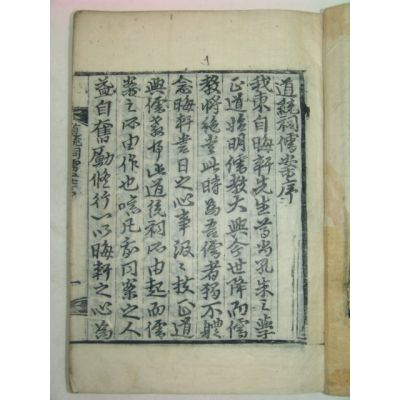 道統祠儒案序
我東自晦軒先生首尙孔朱之學
正道始明儒教大興今世降而儒
教將絶當此時為吾儒者獨不體
念晦軒當日之心事汲〻扶正道
興儒教乎此道統祠所由起而儒
案之所由作也嗟凡我同案之人
益自奮勵修行一以晦軒之心為
道統祠儒案序
一